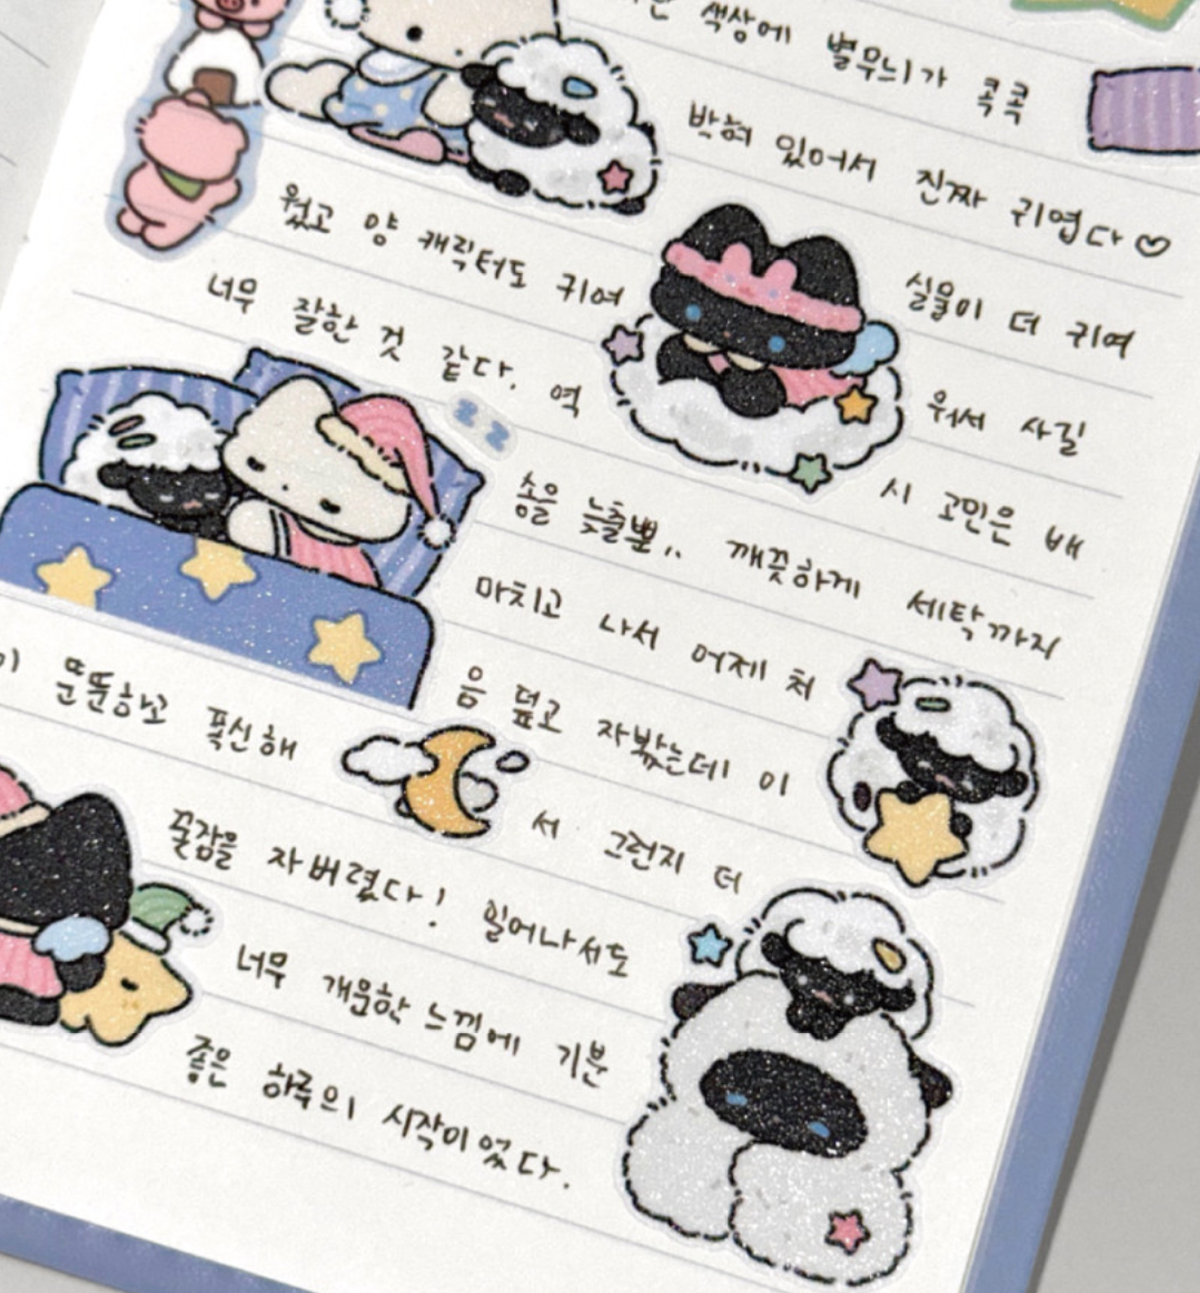 색상에 별무늬가 콕콕
박혀 있어서 진짜 귀엽다♡
실물이 더 귀여
웠고 양 캐릭터도 귀여 워서 사길
너무 잘한 것 같다. 역 시 고민은 배
송을 늦출뿐.. 깨끗하게 세탁까지
마치고 나서 어제 처
음 덮고 자봤는데 이
뚠뚠하고 폭신해 서 그런지 더
꿀잠을 자버렸다! 일어나서도
너무 개운한 느낌에 기분
좋은 하루의 시작이었다.